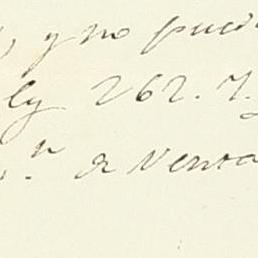 , y no pued
ly 262. 7.
n de Venta